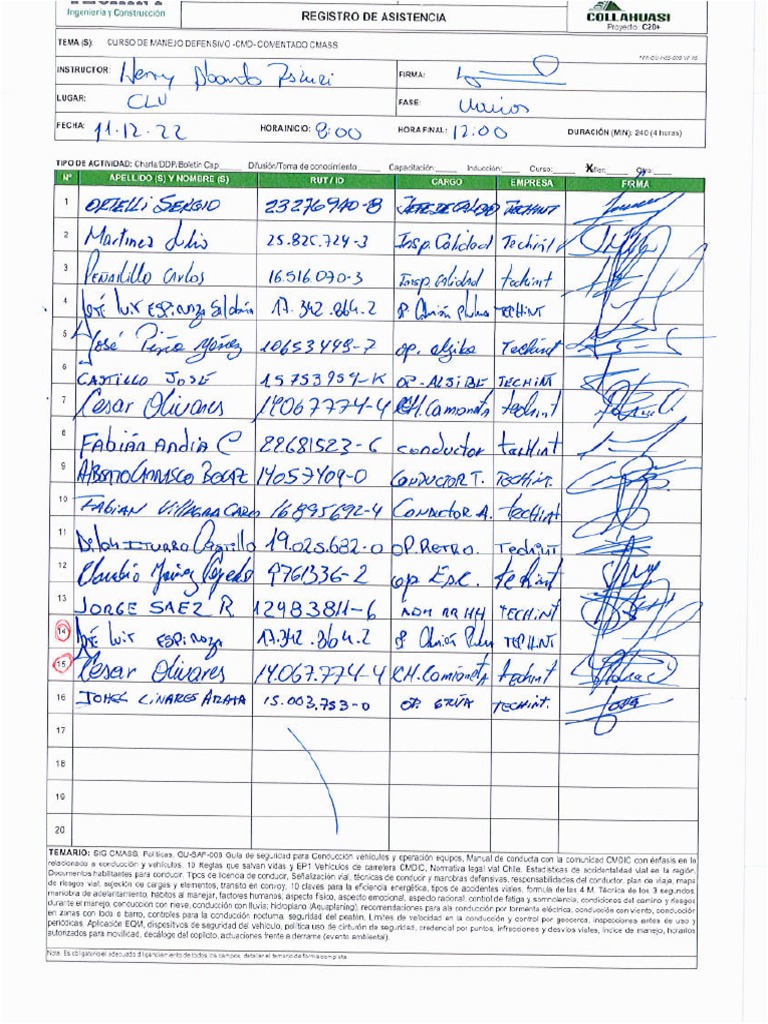 Ingeniería y Construcción
REGISTRO DE ASISTENCIA
COLLAHUASI
Proyecto C20+
TEMA (S): CURSO DE MANEJO DEFENSIVO -CMD- COMENTADO CMASS
INSTRUCTOR: Henry Abando
FIRMA:
LUGAR: CLU
FASE: Varios
FECHA: 11.12.22 HORA INICIO: 8:00 HORA FINAL: 12:00 DURACIÓN (MIN): 240 (4 horas)
TIPO DE ACTIVIDAD: Charla/DDP/Boletín Cap. Difusión/Toma de conocimiento Capacitación: Inducción: Curso: X
N° APELLIDO (S) Y NOMBRE (S) RUT / ID CARGO EMPRESA FIRMA
1 ORTELLI SERGIO 23276940-8 JEFE DE CALIDAD TECHINT
2 Martinez Julio 25.826.724-3 Insp. Calidad Techint
3 Peñailillo Carlos 16.516.070-3 Insp. calidad techint
4 José Luis ESPINOZA Saldaña 17.342.864.2 TECHINT
5 José Piña Yáñez 10653449-7 op. algibe Techint
6 CASTILLO JOSÉ 15753954-K OP-ALGIBE TECHINT
7 Cesar Olivares 14.067.774-4 CH. Camioneta techint
8 FABIÁN ANDIA C 22681523-6 conductor techint
9 ALBERTO CARRASCO BOCAZ 14057409-0 CONDUCTOR T. TECHINT.
10 FABIAN VILLAGRA CARO 16895692-4 CONDUCTOR A. techint
11 ITURRA Carrillo 19.025.682-0 OP. RETRO. Techint
12 Claudio Yáñez Cepeda 9761336-2 op Exc. techint
13 JORGE SAEZ R 12983811-6 ADM RRHH TECHINT
14 José Luis ESPINOZA 17.342.864.2 TECHINT
15 Cesar Olivares 14.067.774-4 CH. Camioneta techint
16 JOHEL LINARES ARAYA 15.003.753-0 OP. GRÚA TECHINT.
17
18
19
20
TEMARIO: SIG CMASS, Políticas, GU-SAF-003 Guía de seguridad para Conducción vehículos y operación equipos, Manual de conducta con la comunidad CMDIC con énfasis en lo
relacionado a conducción y vehículos. 10 Reglas que salvan vidas y EP1 Vehículos de carretera CMDIC, Normativa legal vial Chile. Estadísticas de accidentabilidad vial en la región.
Documentos habilitantes para conducir. Tipos de licencia de conducir, Señalización vial, técnicas de conducir y maniobras defensivas, responsabilidades del conductor, plan de viaje, mapa
de riesgos vial, sujeción de cargas y elementos, transito en convoy, 10 claves para la eficiencia energética, tipos de accidentes viales, formula de las 4 M. Técnica de los 3 segundos,
maniobra de adelantamiento, hábitos al manejar, factores humanos, aspecto físico, aspecto emocional, aspecto racional, control de fatiga y somnolencia, condiciones del camino y riesgos
durante el manejo, conducción con nieve, conducción con lluvia; hidroplano (Aquaplaning), recomendaciones para la conducción por tormenta eléctrica, conducción con viento, conducción
en zonas con lodo o barro, controles para la conducción nocturna, seguridad del peatón. Límites de velocidad en la conducción y control por geocerca, inspecciones antes de uso y
periódicas. Aplicación EQM, dispositivos de seguridad del vehículo, política uso de cinturón de seguridad, credencial por puntos, infracciones y desvíos viales, índice de manejo, horarios
autorizados para movilidad, decálogo del copiloto, actuaciones frente a derrame (evento ambiental).
Nota: Es obligatorio el adecuado diligenciamiento de todos los campos, detallar el temario de forma completa